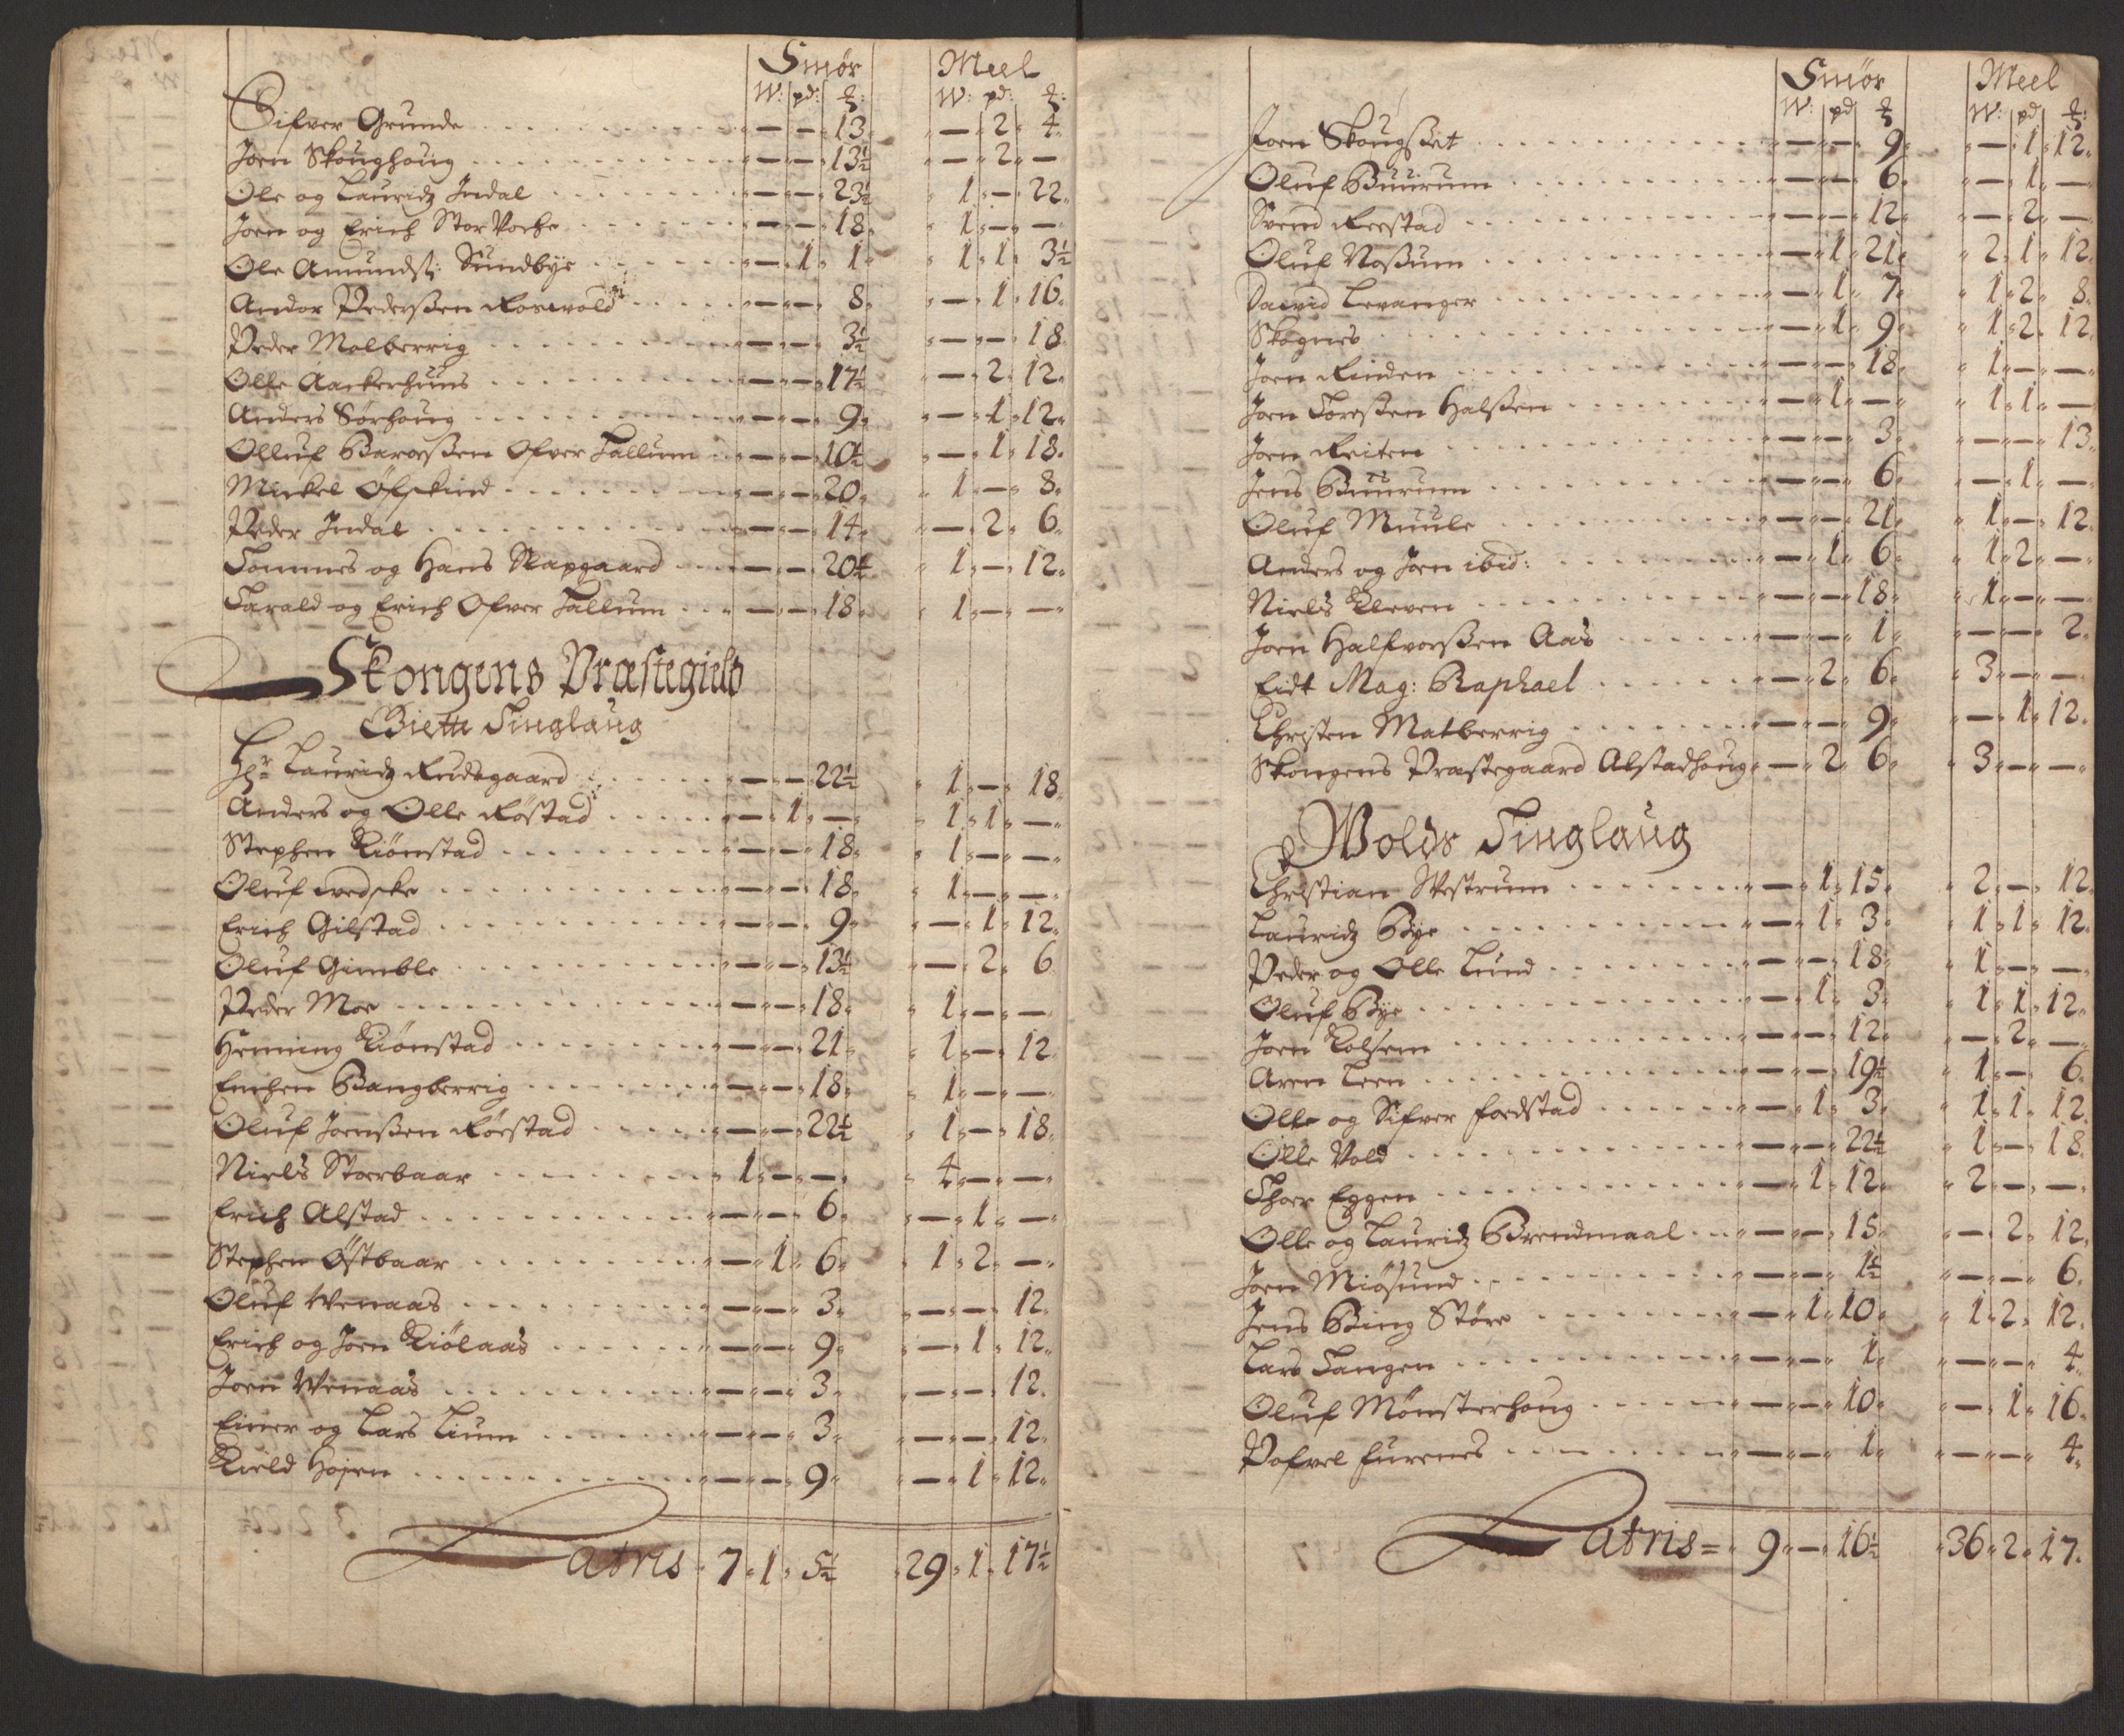 Smør Meel
W: pd: ℔: W: pd: ℔:
Sifver Grunde — — 13 — 2 4
Joen Skoughoug — — 13½ — 2 —
Ole og Lauridz Indal — — 23½ 1 — 22
Joen og Erich Stor — — 18 1 — —
Ole Amundsß: Sundbye — 1 1 1 1 3½
Andor Pederßen Rosevold — — 8 — 1 16
Peder Molberrig — — 3½ — — 18
Olle Aackerhuus — — 17½ — 2 12
Anders Sørhoug — — 9 — 1 12
Olluf Baroeßen Ofver Tallum — — 10½ — 1 18
Mickel Øfskind — — 20 1 — 8
Peder Indal — — 14 — 2 6
Tommes og Hans Slapgaard — — 20½ 1 — 12
Tarald og Erich Ofver Tallum — — 18 1 — —
Skongens Præstegield
Tinglaug
Hr Lauridz Reidsgaard — — 22½ 1 — 18
Anders og Olle Røstad — 1 — 1 1 —
Stephen Kiønstad — — 18 1 — —
Oluf — — 18 1 — —
Erich Gilstad — — 9 — 1 12
Oluf Gimble — — 13½ — 2 6
Peder Moe — — 18 1 — —
Henning Kiønstad — — 21 1 — 12
Enchen Bangberrig — — 18 1 — —
Oluf Joenßen Røestad — — 22½ 1 — 18
Niels Storbaar 1 — — 4 — —
Erich Alstad — — 6 — 1 —
Stephen Østbaar — 1 6 1 2 —
Oluf Wenaas — — 3 — — 12
Erich og Joen Kiølaas — — 9 — 1 12
Joen Wenaas — — 3 — — 12
Einer og Lars Lium — — 3 — — 12
Kield Hojen — — 9 — 1 12
Latris 7 1 5½ 29 1 17½
Smør Meel
W: pd ℔ W: pd ℔:
Joen Skougset — — 9 — 1 12
Oluf Buurum — — 6 — 1 —
Svend Reestad — — 12 — 2 —
Oluf Noßum — 1 21 2 1 12
David Levanger — 1 7 1 2 8
Skognes — 1 9 1 2 12
Joen Rinden — — 18 1 — —
Joen Toresten Halsten — 1 — 1 1 —
Joen Reiten — — 3 — — 13
Jens Buurum — — 6 — 1 —
Oluf Muule — — 21 1 — 12
Anders og Joen ibid: — 1 6 1 2 —
Niels Kleven — — 18 1 — —
Joen Halfvorßen Aas — — 1 — — 2
Eidt Mag: Raphael — 2 6 3 — —
Christen Matberrig — — 9 — 1 12
Skongens Præstegaard Alstadhoug — 2 6 3 — —
Wolds Tinglaug
Christian Westrum — 1 15 2 — 12
Lauridz Bye — 1 3 1 1 12
Peder og Olle Lund — — 18 1 — —
Oluf Bye — 1 3 1 1 12
Joen Kolsem — — 12 — 2 —
Aren Leen — — 19½ 1 — 6
Olle og Sifver Fordstad — 1 3 1 1 12
Olle Vold — — 22½ 1 — 18
Thore Eggen — 1 12 2 — —
Olle og Lauridz Brendmaal — — 15 — 2 12
Joen Miøsund — — 1½ — — 6
Jens Bing Støre — 1 10 1 2 12
Lars Tangen — — 1 — — 4
Oluf Mønsterhoug — — 10 — 1 16
Pofvel Furenes — — 1 — — 4
Latris 9 — 16½ 36 2 17